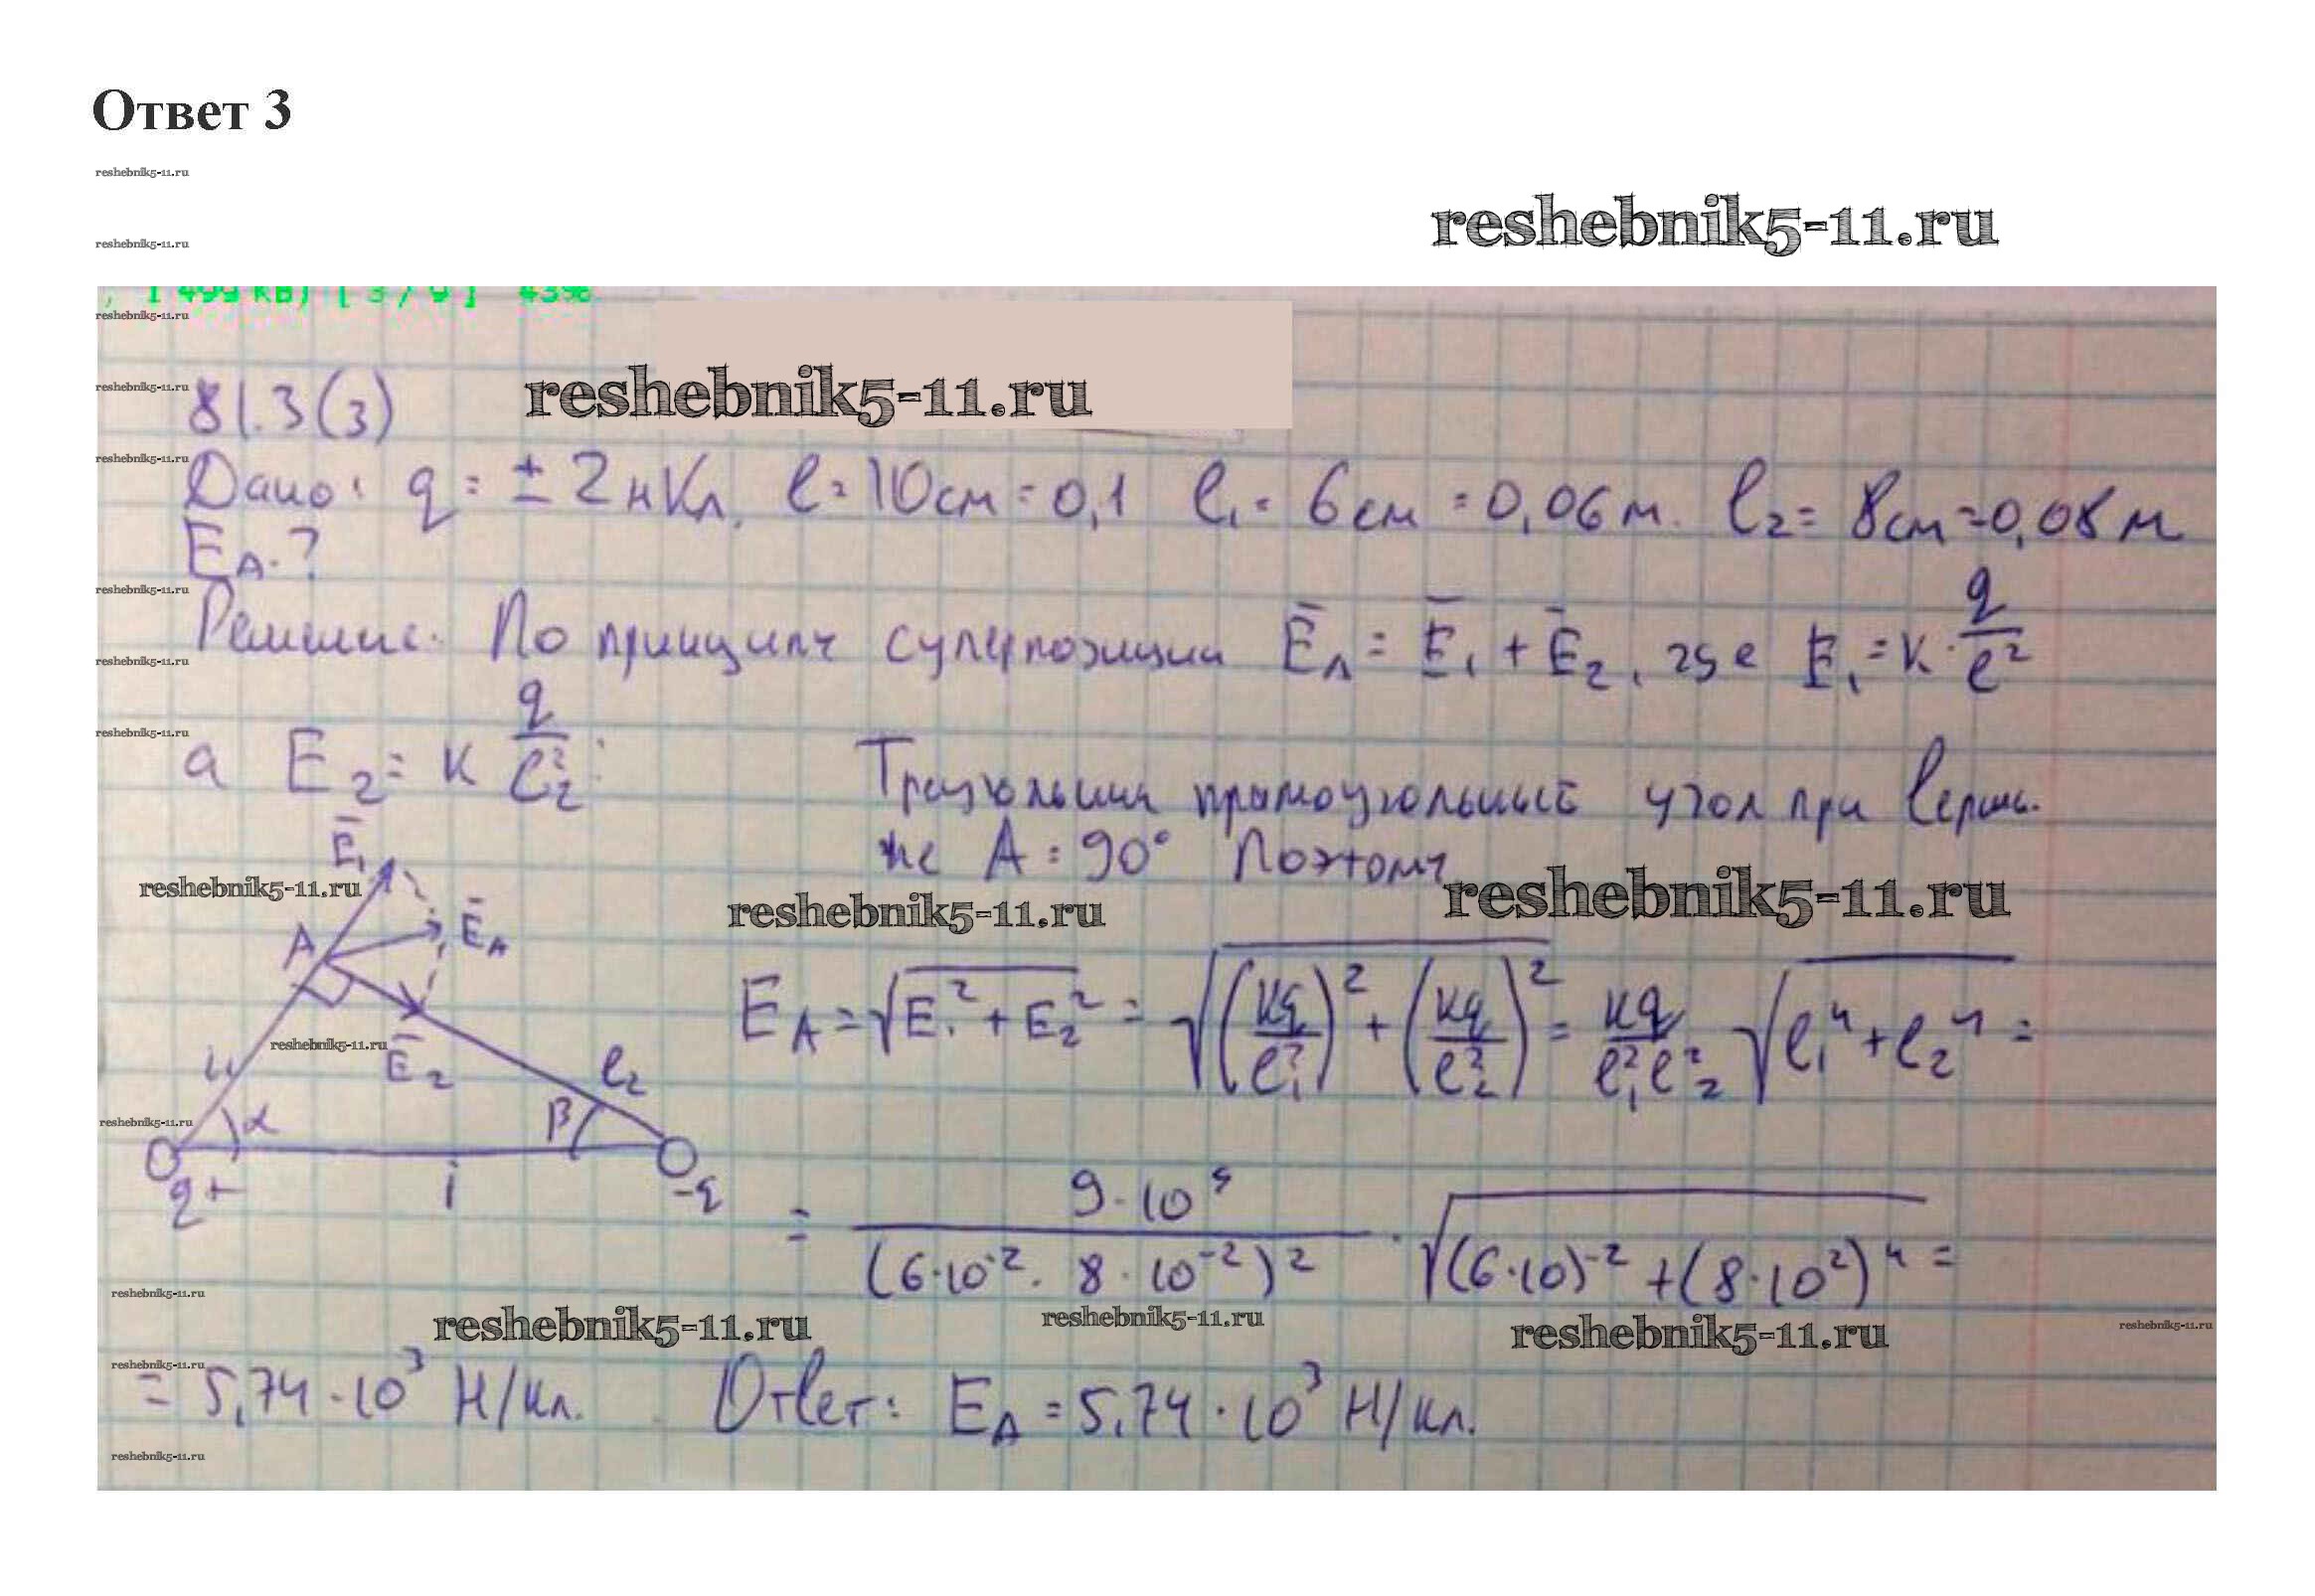 Ответ 3
reshebnik5-11.ru
reshebnik5-11.ru
reshebnik5-11.ru
reshebnik5-11.ru
reshebnik5-11.ru
81.3(3)
reshebnik5-11.ru
reshebnik5-11.ru
Дано: q = ± 2 нКл, l = 10 см = 0,1 l₁ = 6 см = 0,06 м. l₂ = 8 см = 0,08 м
E_A - ?
reshebnik5-11.ru
Решение. По принципу суперпозиции E̅_A = E̅₁ + E̅₂, где E₁ = k · q/l²
reshebnik5-11.ru
reshebnik5-11.ru
а E₂ = k q/l₂²
Треугольник прямоугольный угол при верши-
не A = 90° Поэтому
E̅₁
reshebnik5-11.ru
reshebnik5-11.ru
reshebnik5-11.ru
A E̅_A
E_A = √(E₁² + E₂²) = √((kq/l₁²)² + (kq/l₂²)²) = kq/(l₁² l₂²) √(l₁⁴ + l₂⁴) =
reshebnik5-11.ru
E̅₂ l₂
reshebnik5-11.ru
α β
q+ l -q
= 9·10⁹/(6·10⁻² · 8·10⁻²)² · √((6·10)⁻² + (8·10²)⁴) =
reshebnik5-11.ru
reshebnik5-11.ru
reshebnik5-11.ru
reshebnik5-11.ru
reshebnik5-11.ru
reshebnik5-11.ru
= 5,74 · 10³ Н/Кл. Ответ: E_A = 5,74 · 10³ Н/Кл.
reshebnik5-11.ru